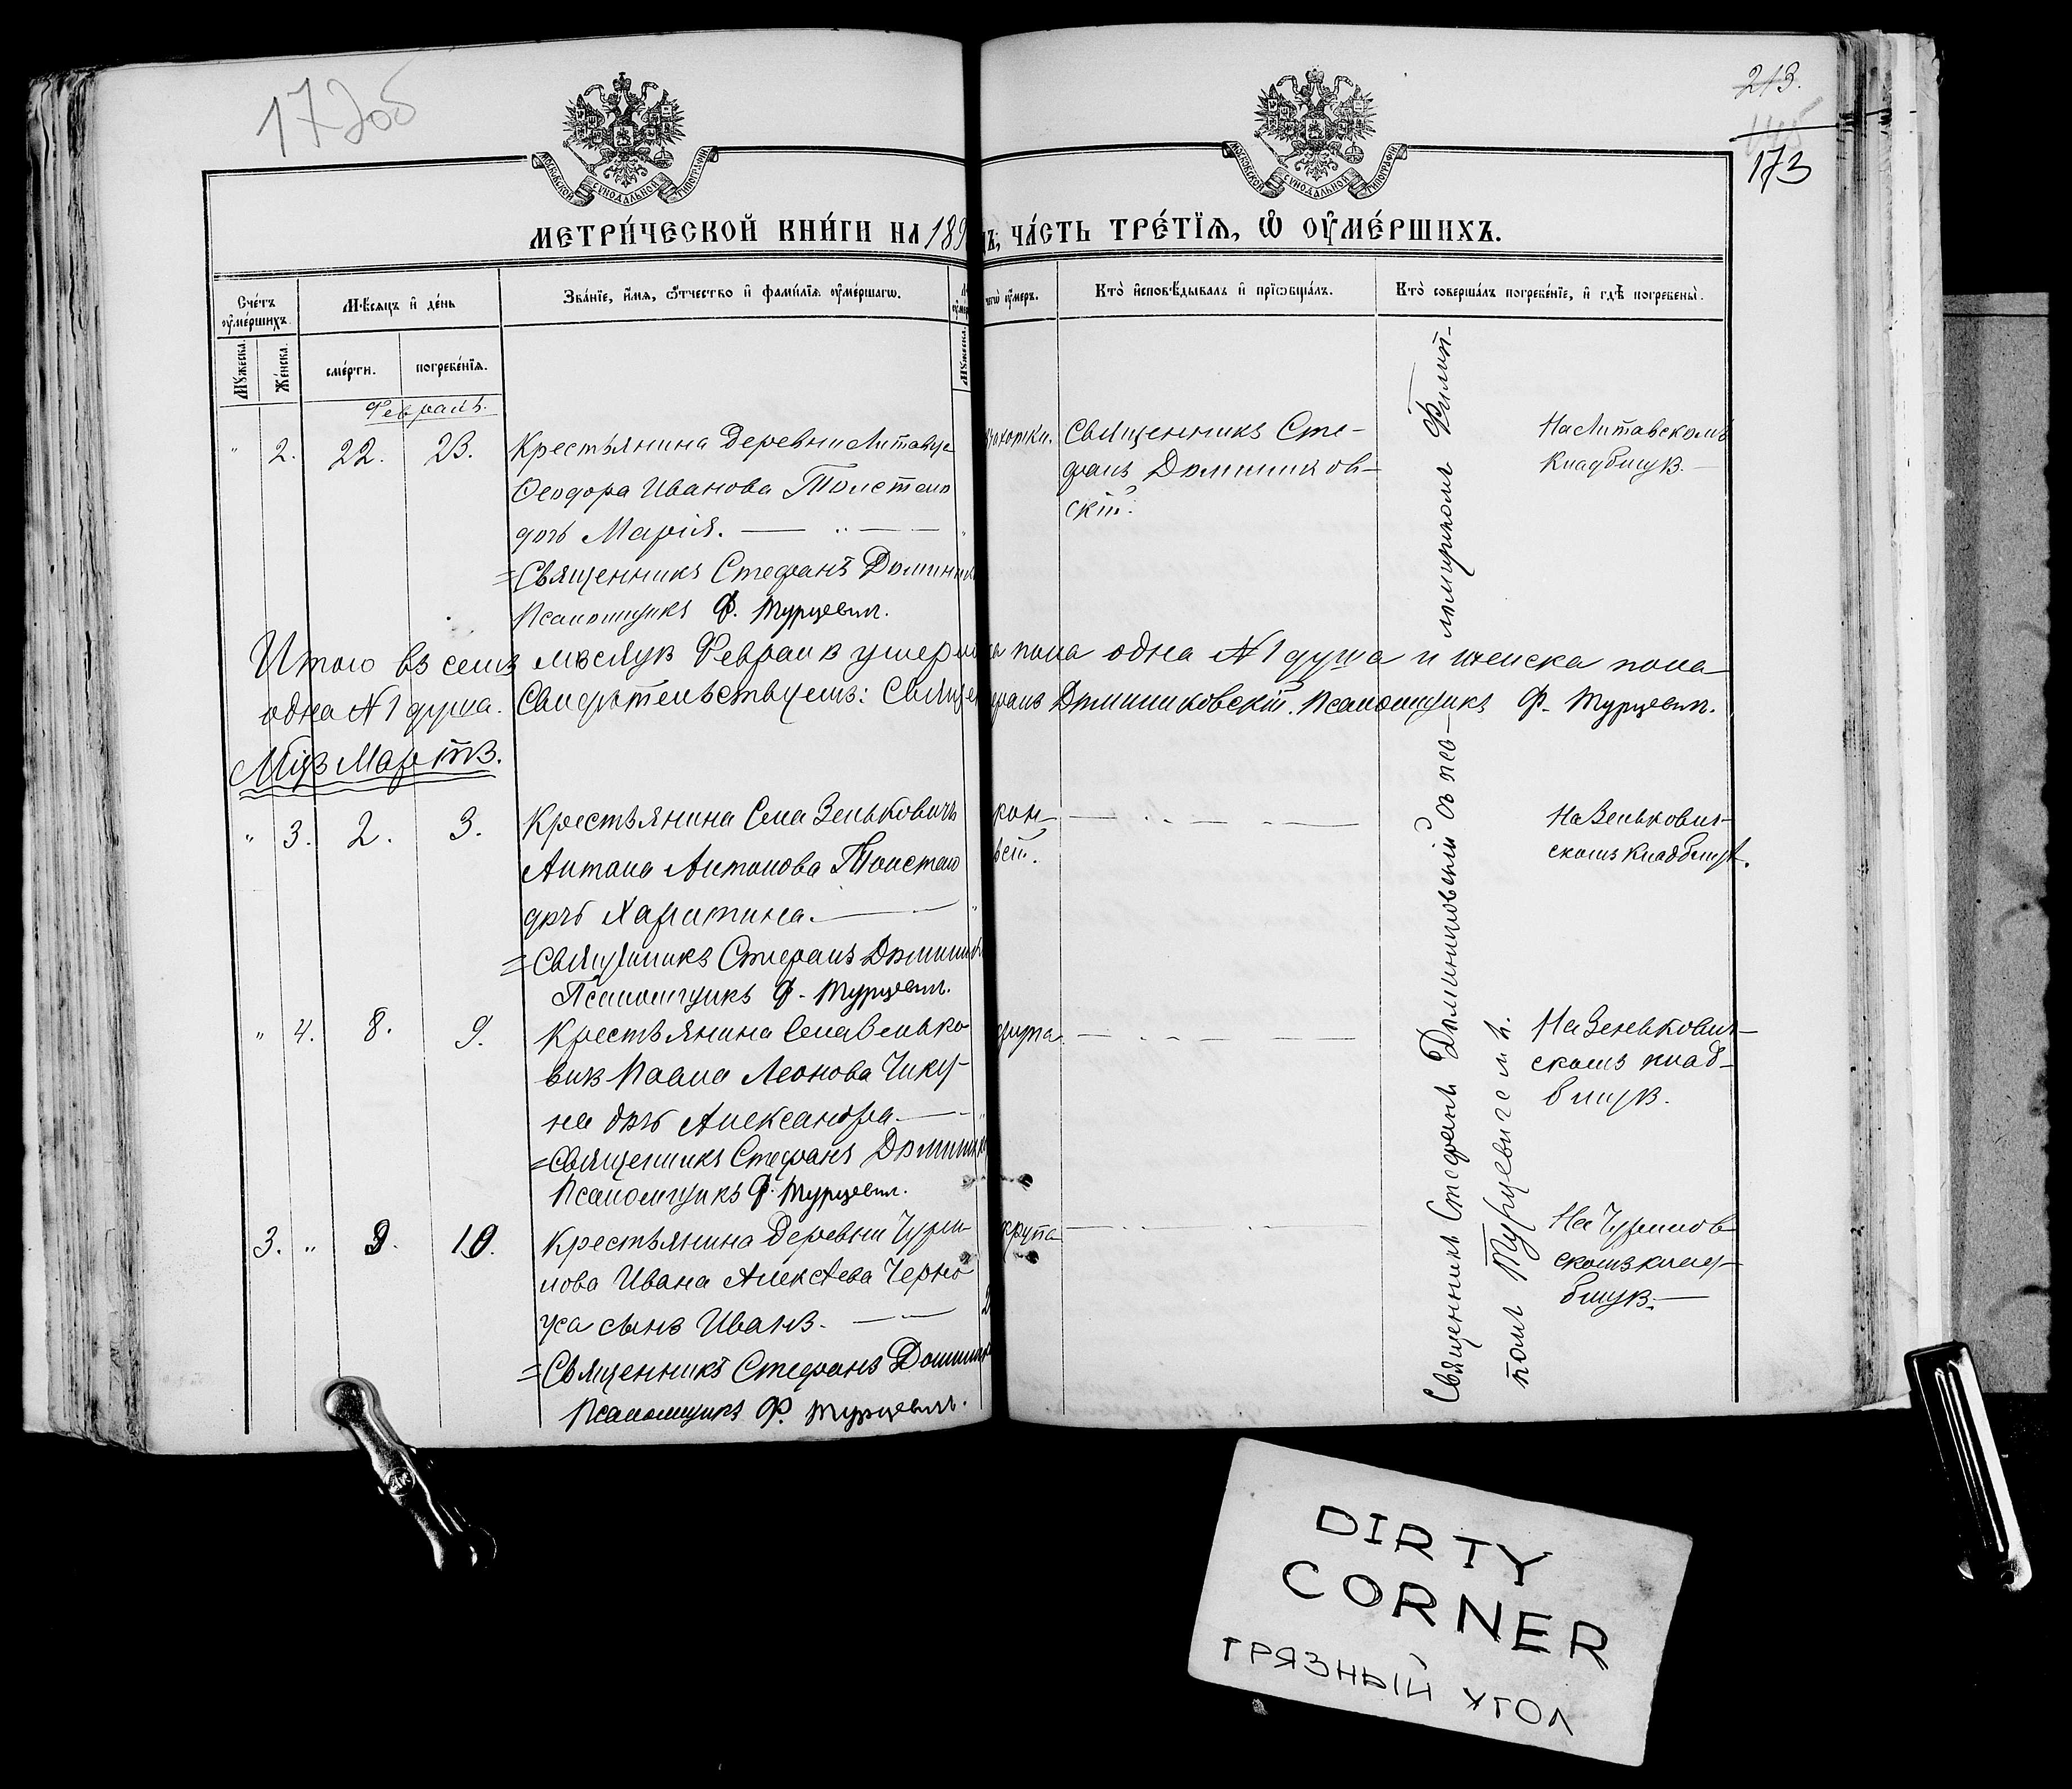 172об
213.
173
МОСКОВСКОЙ СѴНОДАЛЬНОЙ ТИПОГРАФІИ
МОСКОВСКОЙ СѴНОДАЛЬНОЙ ТИПОГРАФІИ
МЕТРИ́ЧЕСКОЙ КНИ́ГИ НА 189
ЧА́СТЬ ТРЕ́ТІѦ, Ѡ҆ ОУ҆МЕ́РШИХЪ.
Сче́тъ оу҆ме́ршихъ.
Мѣ́сяцъ и҆ де́нь
Зва́нїе, и҆́мя, ѻ҆́тчество и҆ фами́лїя оу҆ме́ршагѡ.
чегѡ̀ оу҆́меръ.
Кто̀ и҆сповѣ́дывалъ и҆ прїѡбща́лъ.
Кто̀ соверша́лъ погребе́нїе, и҆ гдѣ̀ погребены̀.
Мꙋ́жеска.
Же́нска.
сме́рти.
погребе́нїя.
Мꙋ́жеска.
Февраль.
" 2. 22. 23. Крестьянина Деревни Литавце
Ѳеодора Иванова Толстого
дочь Марія.
=Священникъ Стефанъ Доминик
Псаломщикъ Ф. Турцевич.
чахотки. Священникъ Сте-
фанъ Домиников-
скій.
На Литавскомъ
кладбищѣ.
Итого въ семъ мѣсяцѣ Февралѣ умерло
пола одна №1 душа и женска пола
одна №1 душа. Свидѣтельствуемъ: Священ
фанъ Доминиковскій. Псаломщикъ Ф. Турцевич.
Мцъ Мартъ.
" 3. 2. 3. Крестьянина Села Зеньковичъ
Антона Антонова Толстого
дочь Харитина.
=Священникъ Стефанъ Доминико
Псаломщикъ Ф. Турцевич.
На Зенькович-
скомъ кладбищѣ.
" 4. 8. 9. Крестьянина Села Зенько
вичъ Павла Леонова Чику-
на дочь Александра.
=Священникъ Стефанъ Доминико
Псаломщикъ Ф. Турцевич.
крупа
На Зенькович-
скомъ клад-
бищѣ.
3. " 9. 10. Крестьянина Деревни Чури-
лова Ивана Алексѣева Черно
уса сынъ Иванъ.
=Священникъ Стефанъ Доминик
Псаломщикъ Ф. Турцевичъ.
крупа
На Чурилов-
скомъ клад-
бищѣ.
Священникъ Стефанъ Доминиковскій съ пса-
ломщикомъ Филип-
помъ Турцевичемъ.
DIRTY
CORNER
ГРЯЗНЫЙ УГОЛ